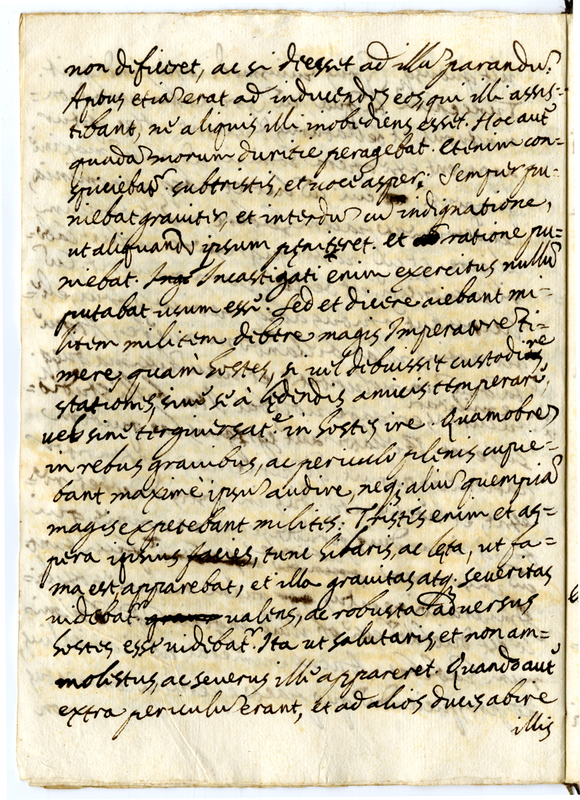 non deficeret, ac si deesset ad illũ parandũ.
Aptus etiã erat ad inducendos eos qui illi assis-
tibant, ne aliquis illi inobediens esset. Hoc autẽ
quadã morum duritie peragebat. Etenim con-
spiciebatr subtristis, et uoce asper; Semper pu-
niebat grauiter, et interdũ cũ indignatione,
ut aliquando ipsum pęniteret. et ratione pu-
niebat. Incastigati enim exercitus nullũ
putabat usum esse. Sed et dicere aiebant mi-
litem militem debere magis Imperatorẽ ti-
mere, quàm hostes, si uel debuisset custodire
stationes, siue se à lędendis amicis temperare,
uel sine tergiuersate in hostes ire. Quamobrẽ
in rebus grauibus, ac periculo plenis cupie-
bant maximè ipsũ audire, neq; aliũ quempiã
magis expetebant milites: Tristis enim et as-
pera ipsius facies, tunc hilaris, ac lęta, ut fa-
ma est apparebat, et illa grauitas atq; seueritas
uidebatr ualens, ac robusta aduersus
hostes esse uidebatr. Ita ut salutaris, et non am-
molestus, ac seuerus ille appareret. Quando autẽ
extra periculũ erant, et ad alios duces abire
illis